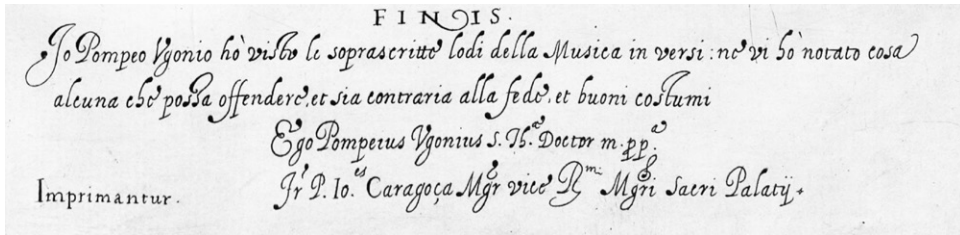 FINIS.
Io Pompeo Vgonio hò visto le soprascritte lodi della Musica in versi: ne vi hò notato cosa
alcuna che possa offendere, et sia contraria alla fede, et buoni costumi
Ego Pompeius Vgonius S. Th.ᵃ Doctor m. pp.ᵃ
Imprimantur. Fr. P. Io.ᵉˢ Caragoça Mgr vice R.ᵐⁱ Mgri Sacri Palatij.